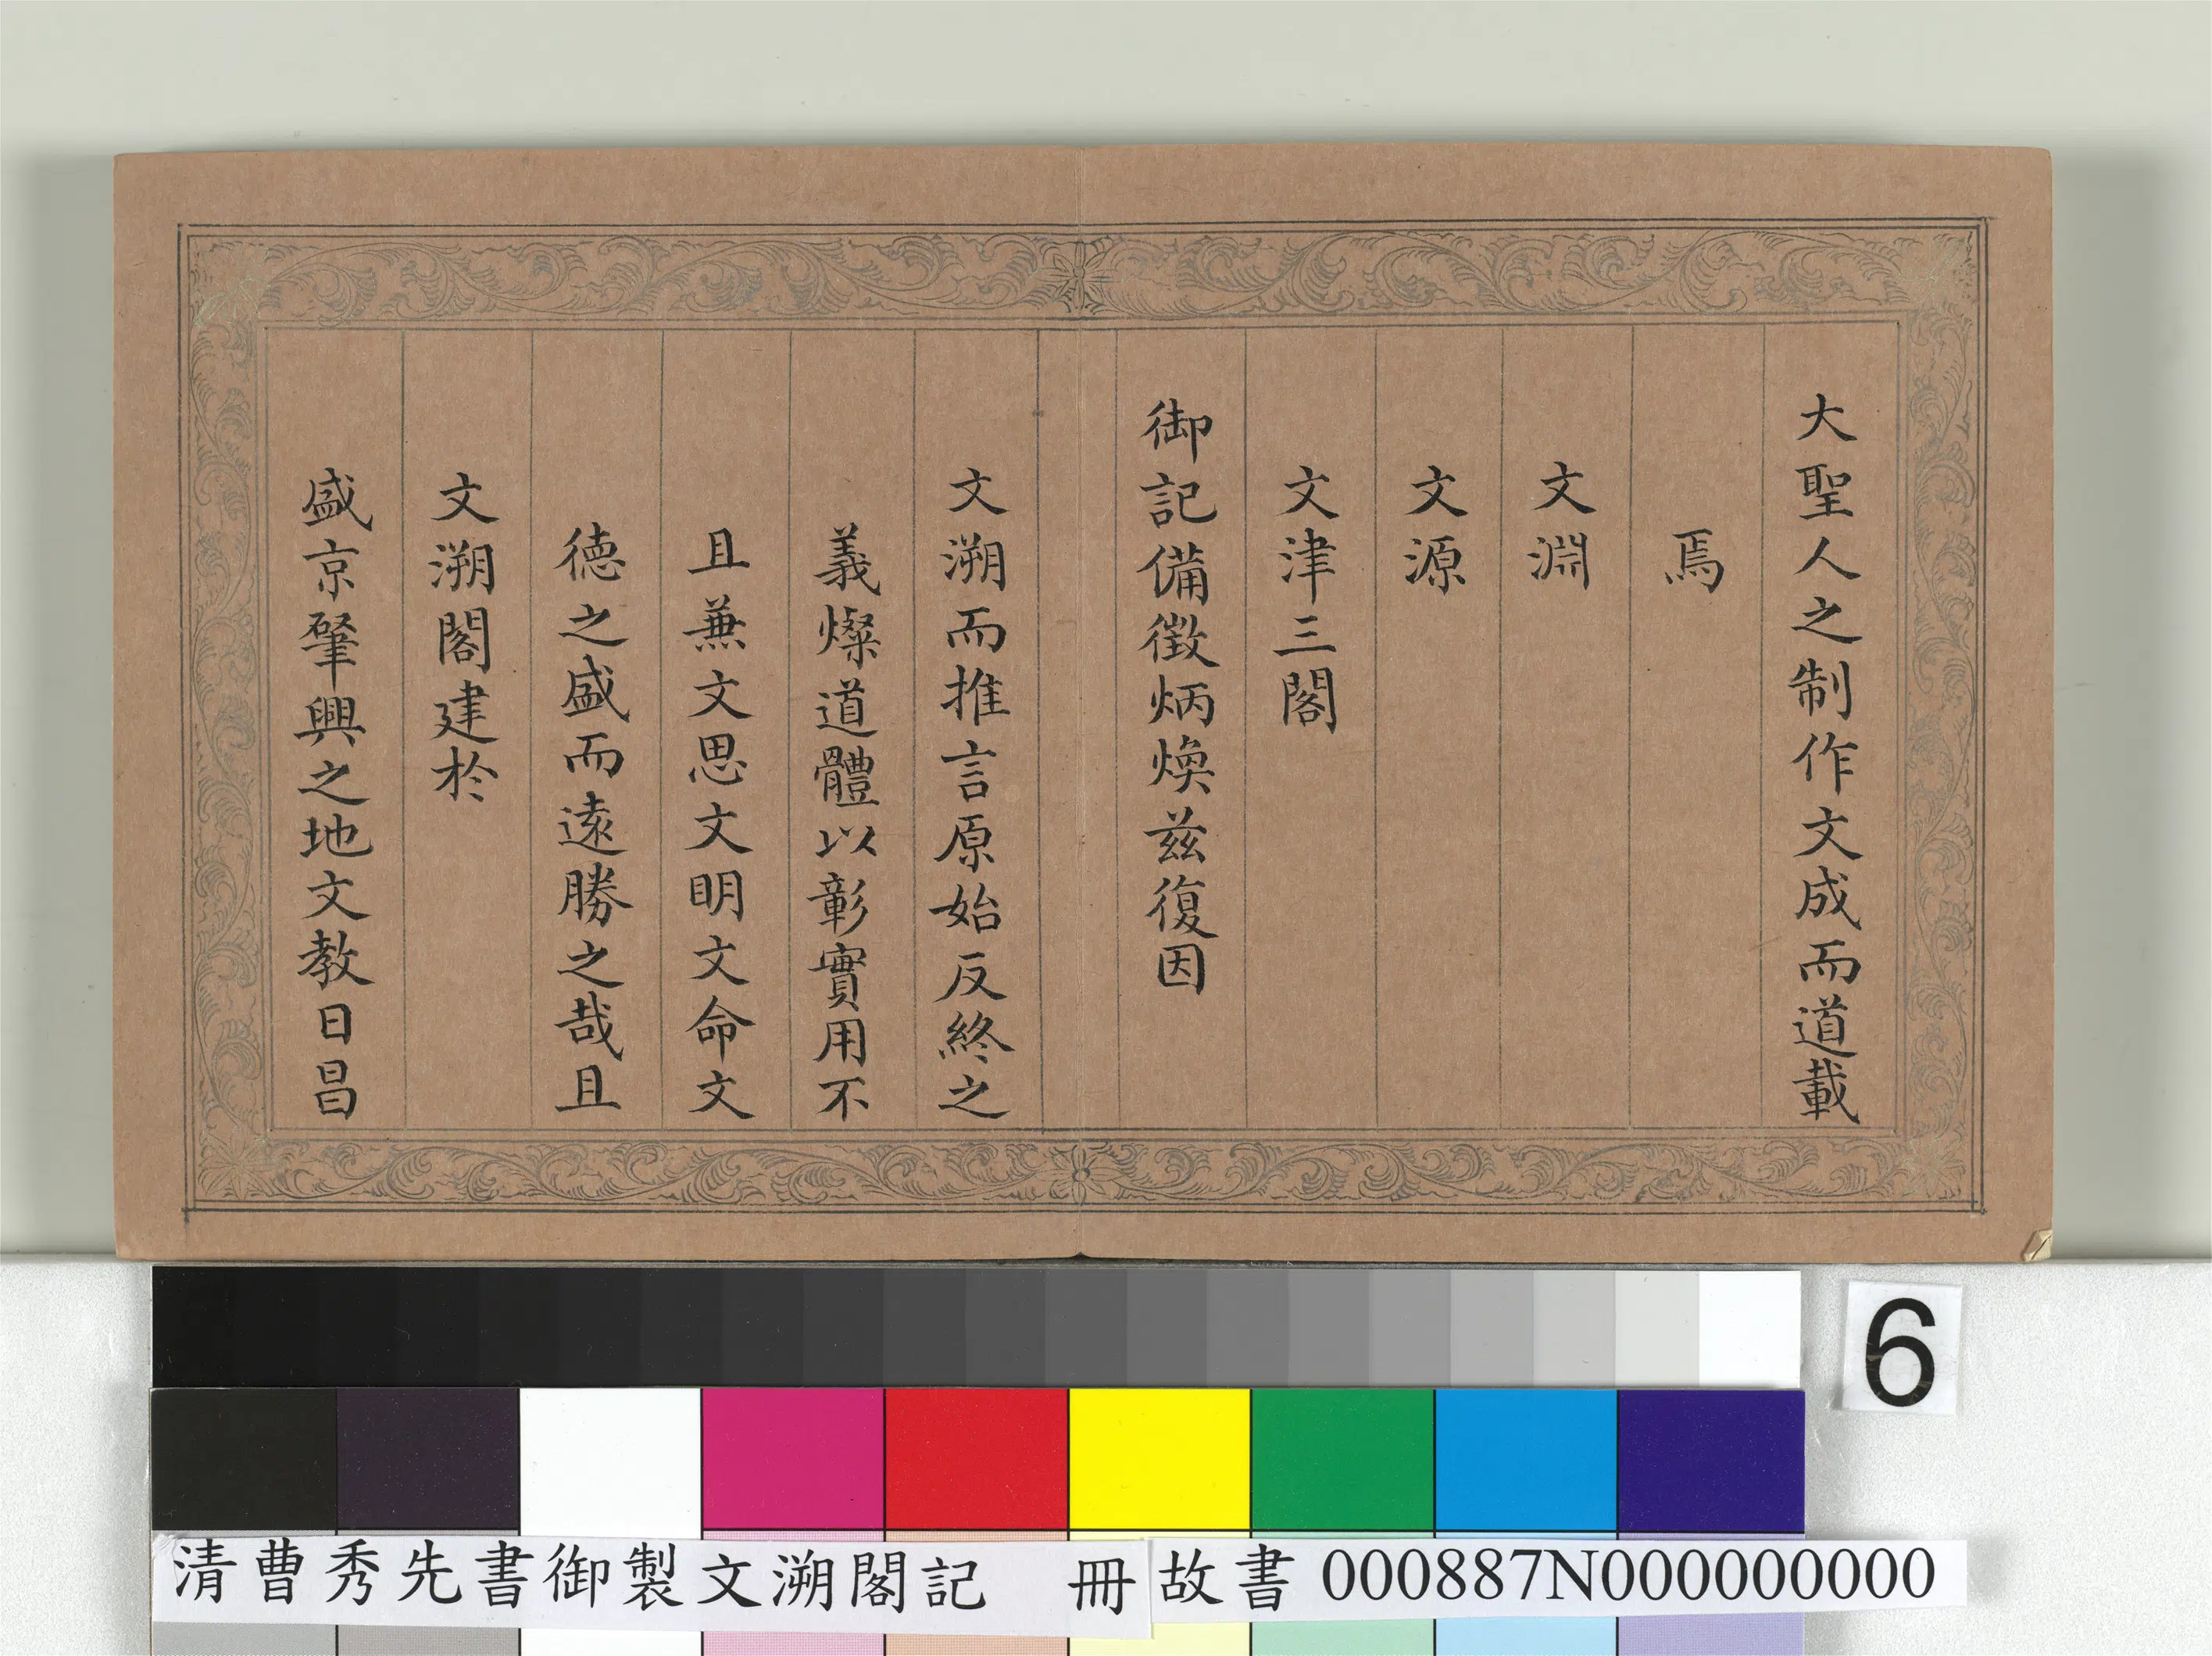 大聖人之制作文成而道載
焉
文淵
文源
文津三閣
御記備徵炳煥茲復因
文溯而推言原始反終之
義燦道體以彰實用不
且兼文思文明文命文
德之盛而遠勝之哉且
文溯閣建於
盛京肇興之地文教日昌
6
清曹秀先書御製文溯閣記 冊 故書 000887N000000000